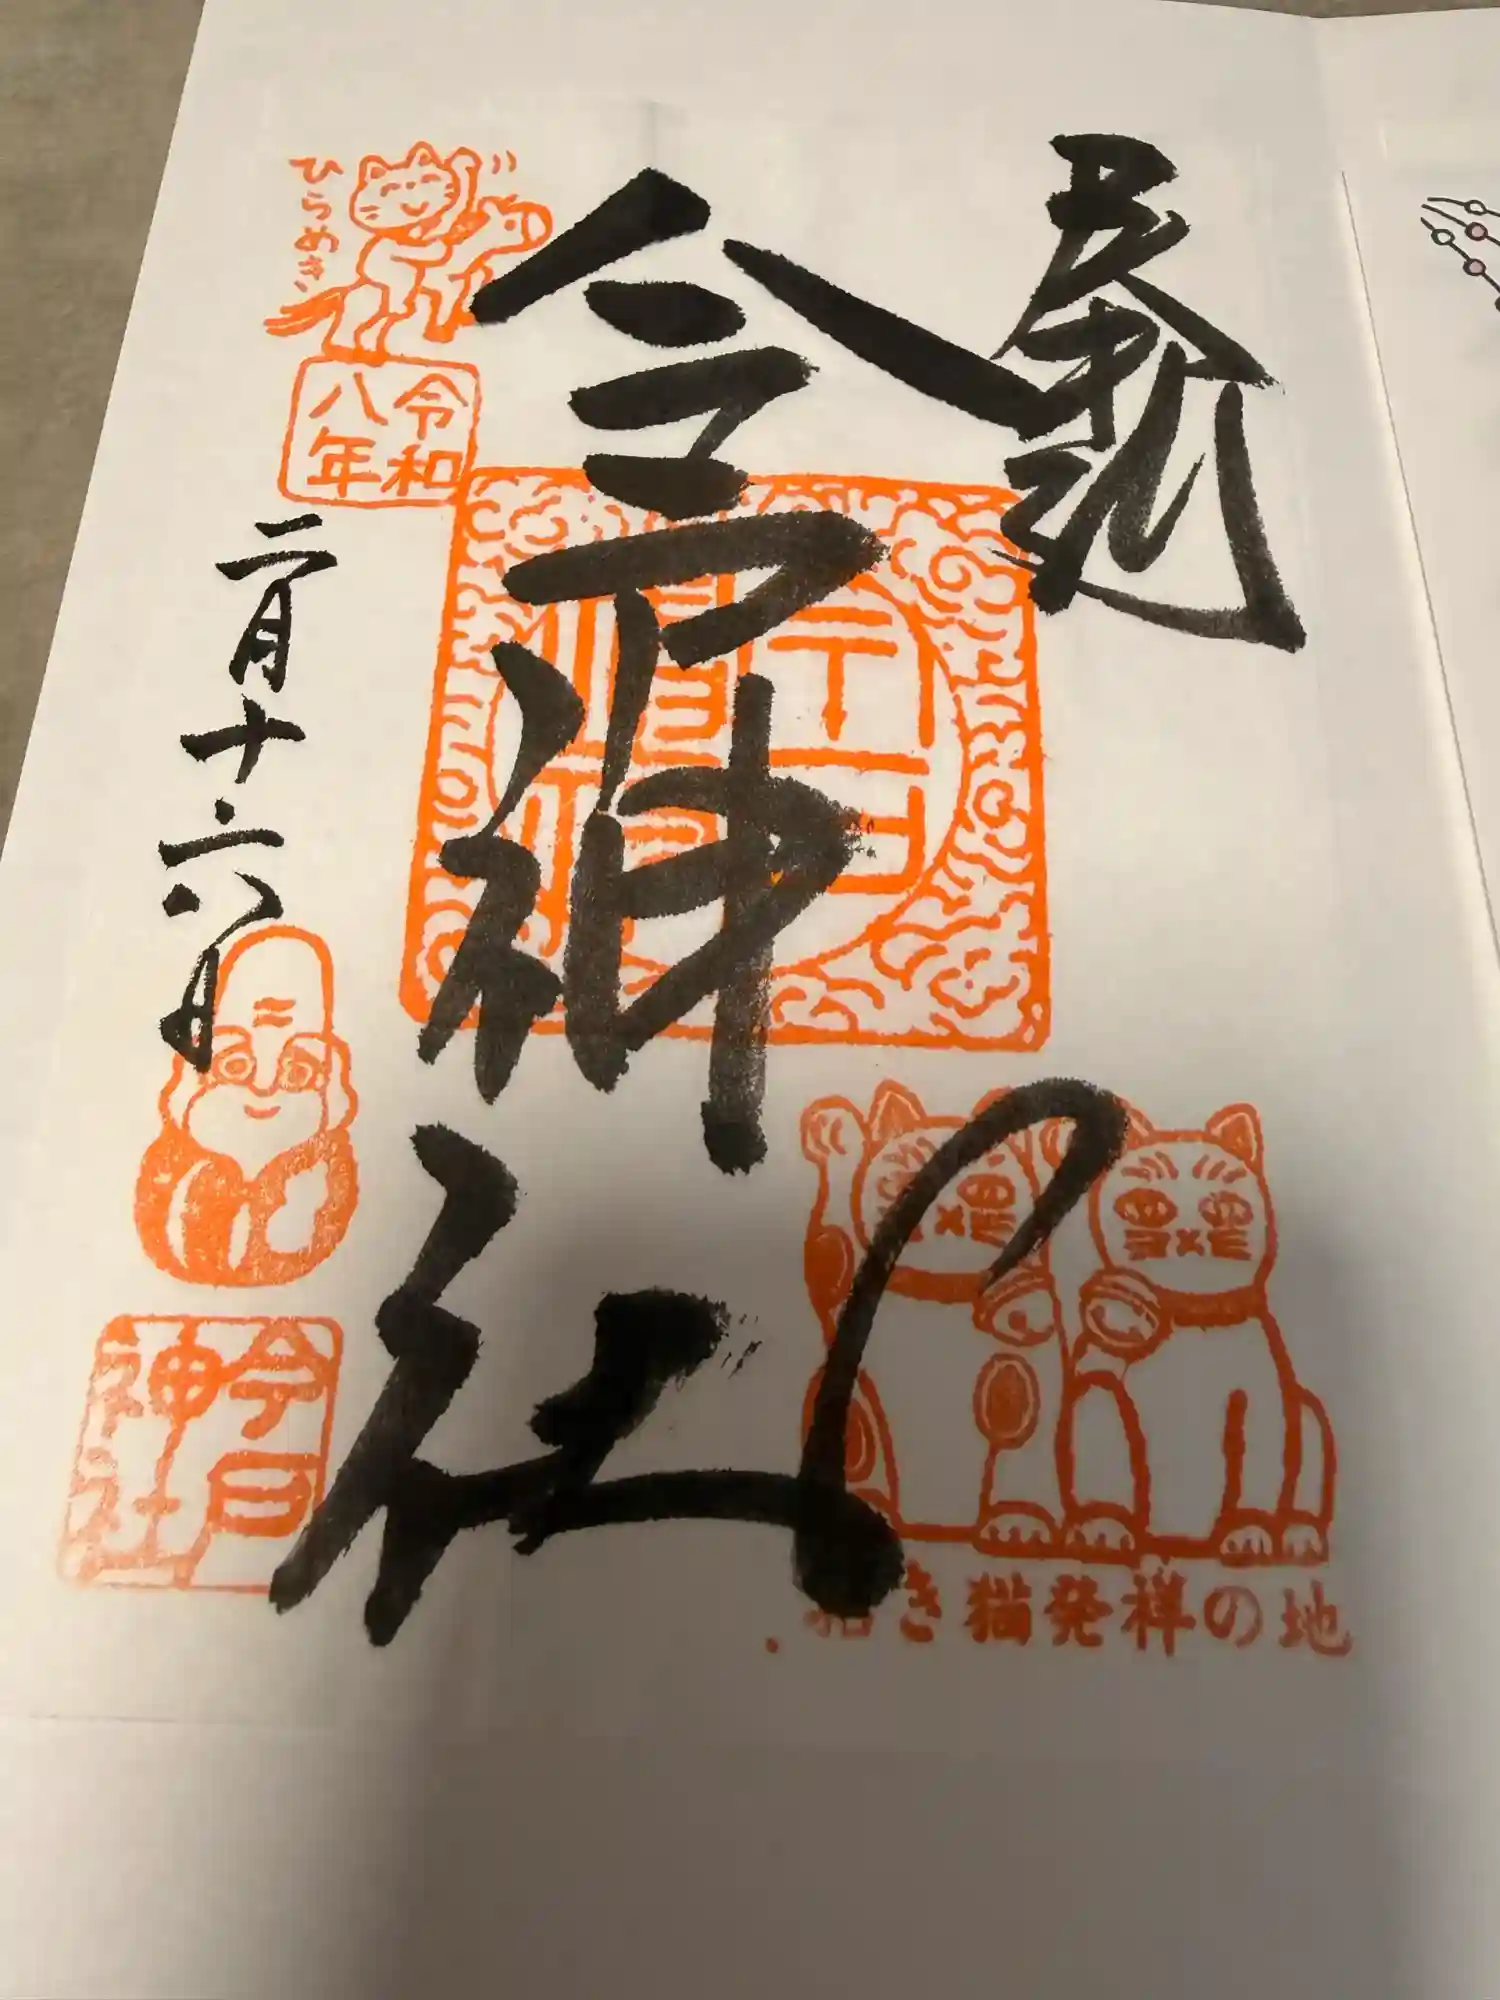 奉拝
今戸神社
ひらめき
令和
八年
二月十六日
今戸
神社
招き猫発祥の地